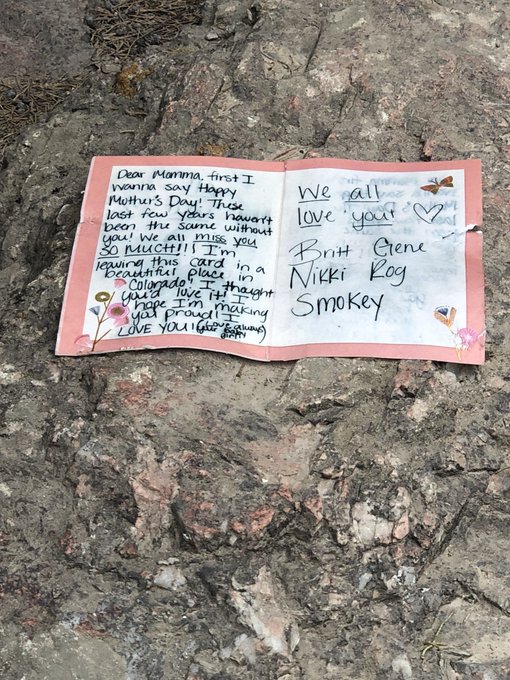 Dear Momma, first I
wanna say Happy
Mothur's Day! These
last few years haven't
been the same without
you! We all miss you
SO MUCH!!! I'm
leaving this card in a
beautiful place in
Colorado! I thought
you'd love it! I
hope I'm making
you proud! I
LOVE YOU! (love always)
We all
love you!
Britt Gene
Nikki Rog
Smokey